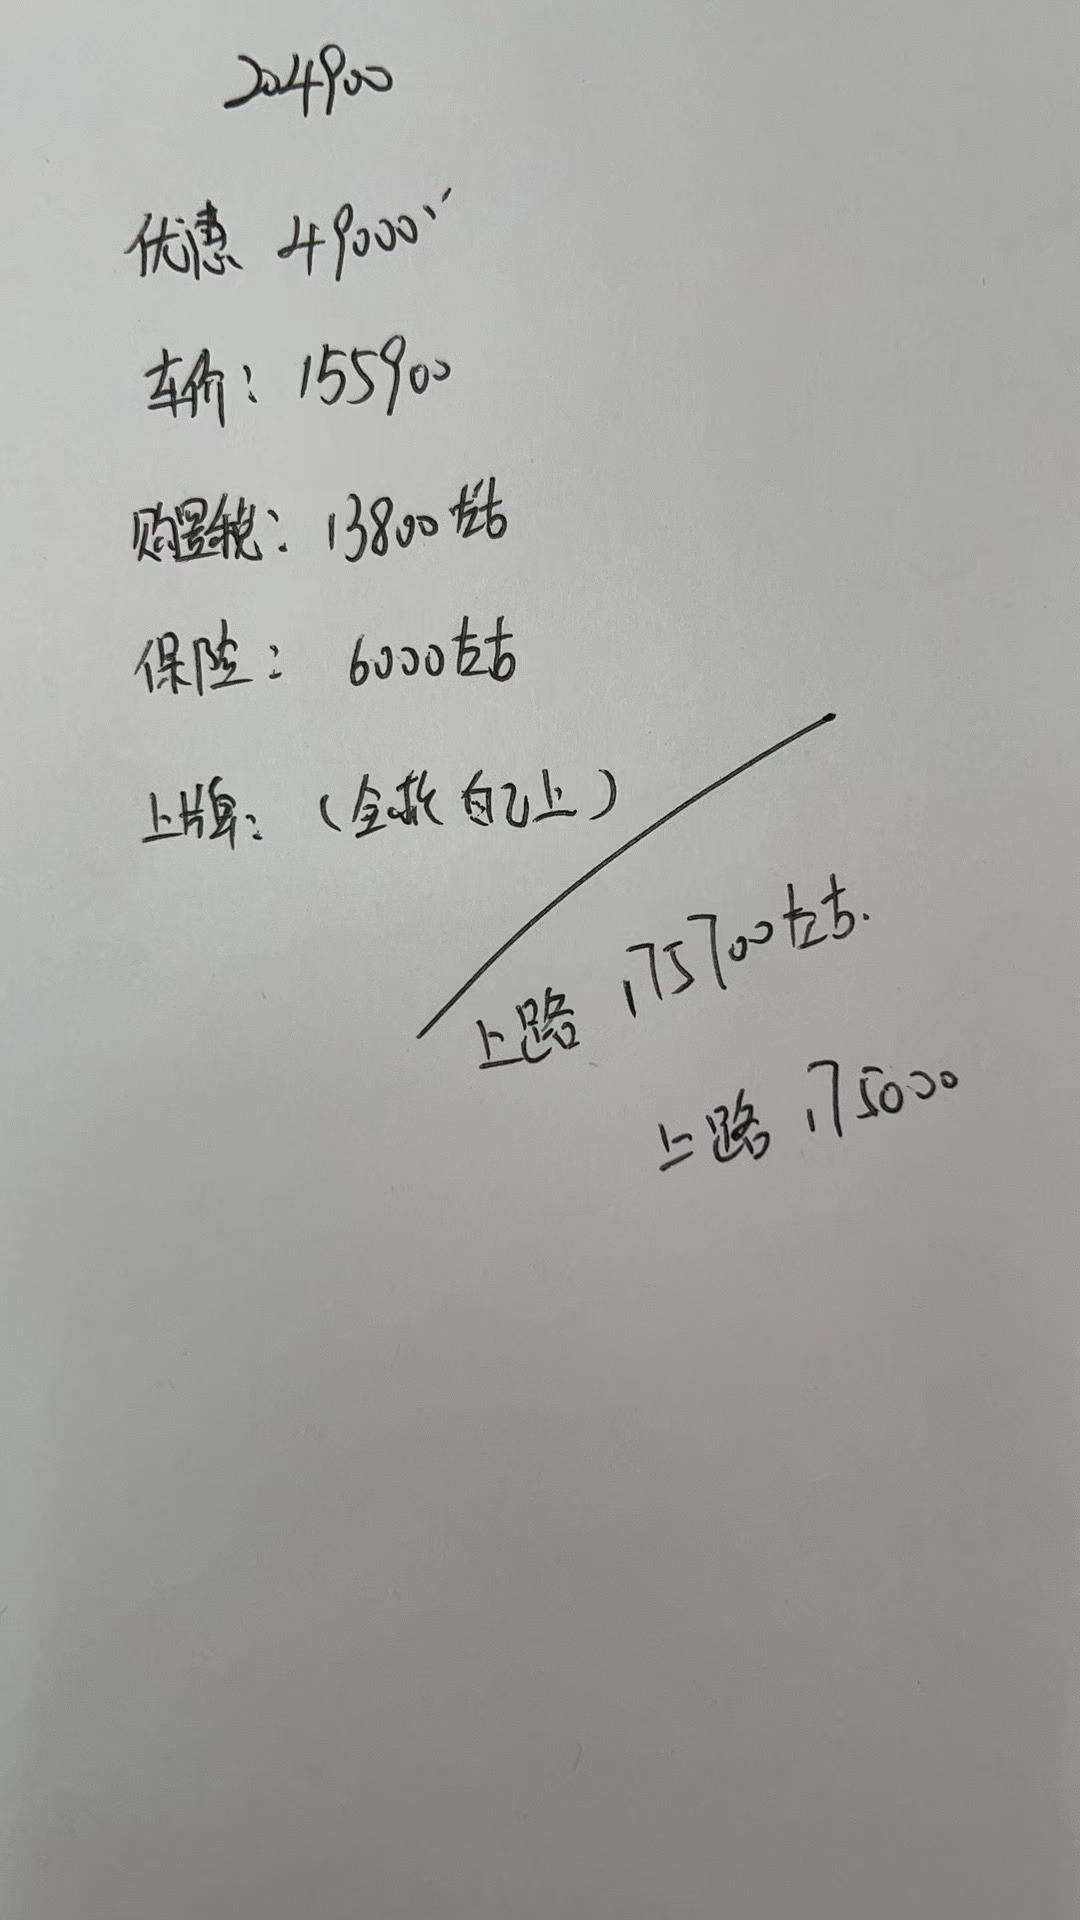 204900
优惠 49000
车价: 155900
购置税: 13800左右
保险: 6000左右
上牌: (全款 自己上)
上路 175700左右.
上路 175000